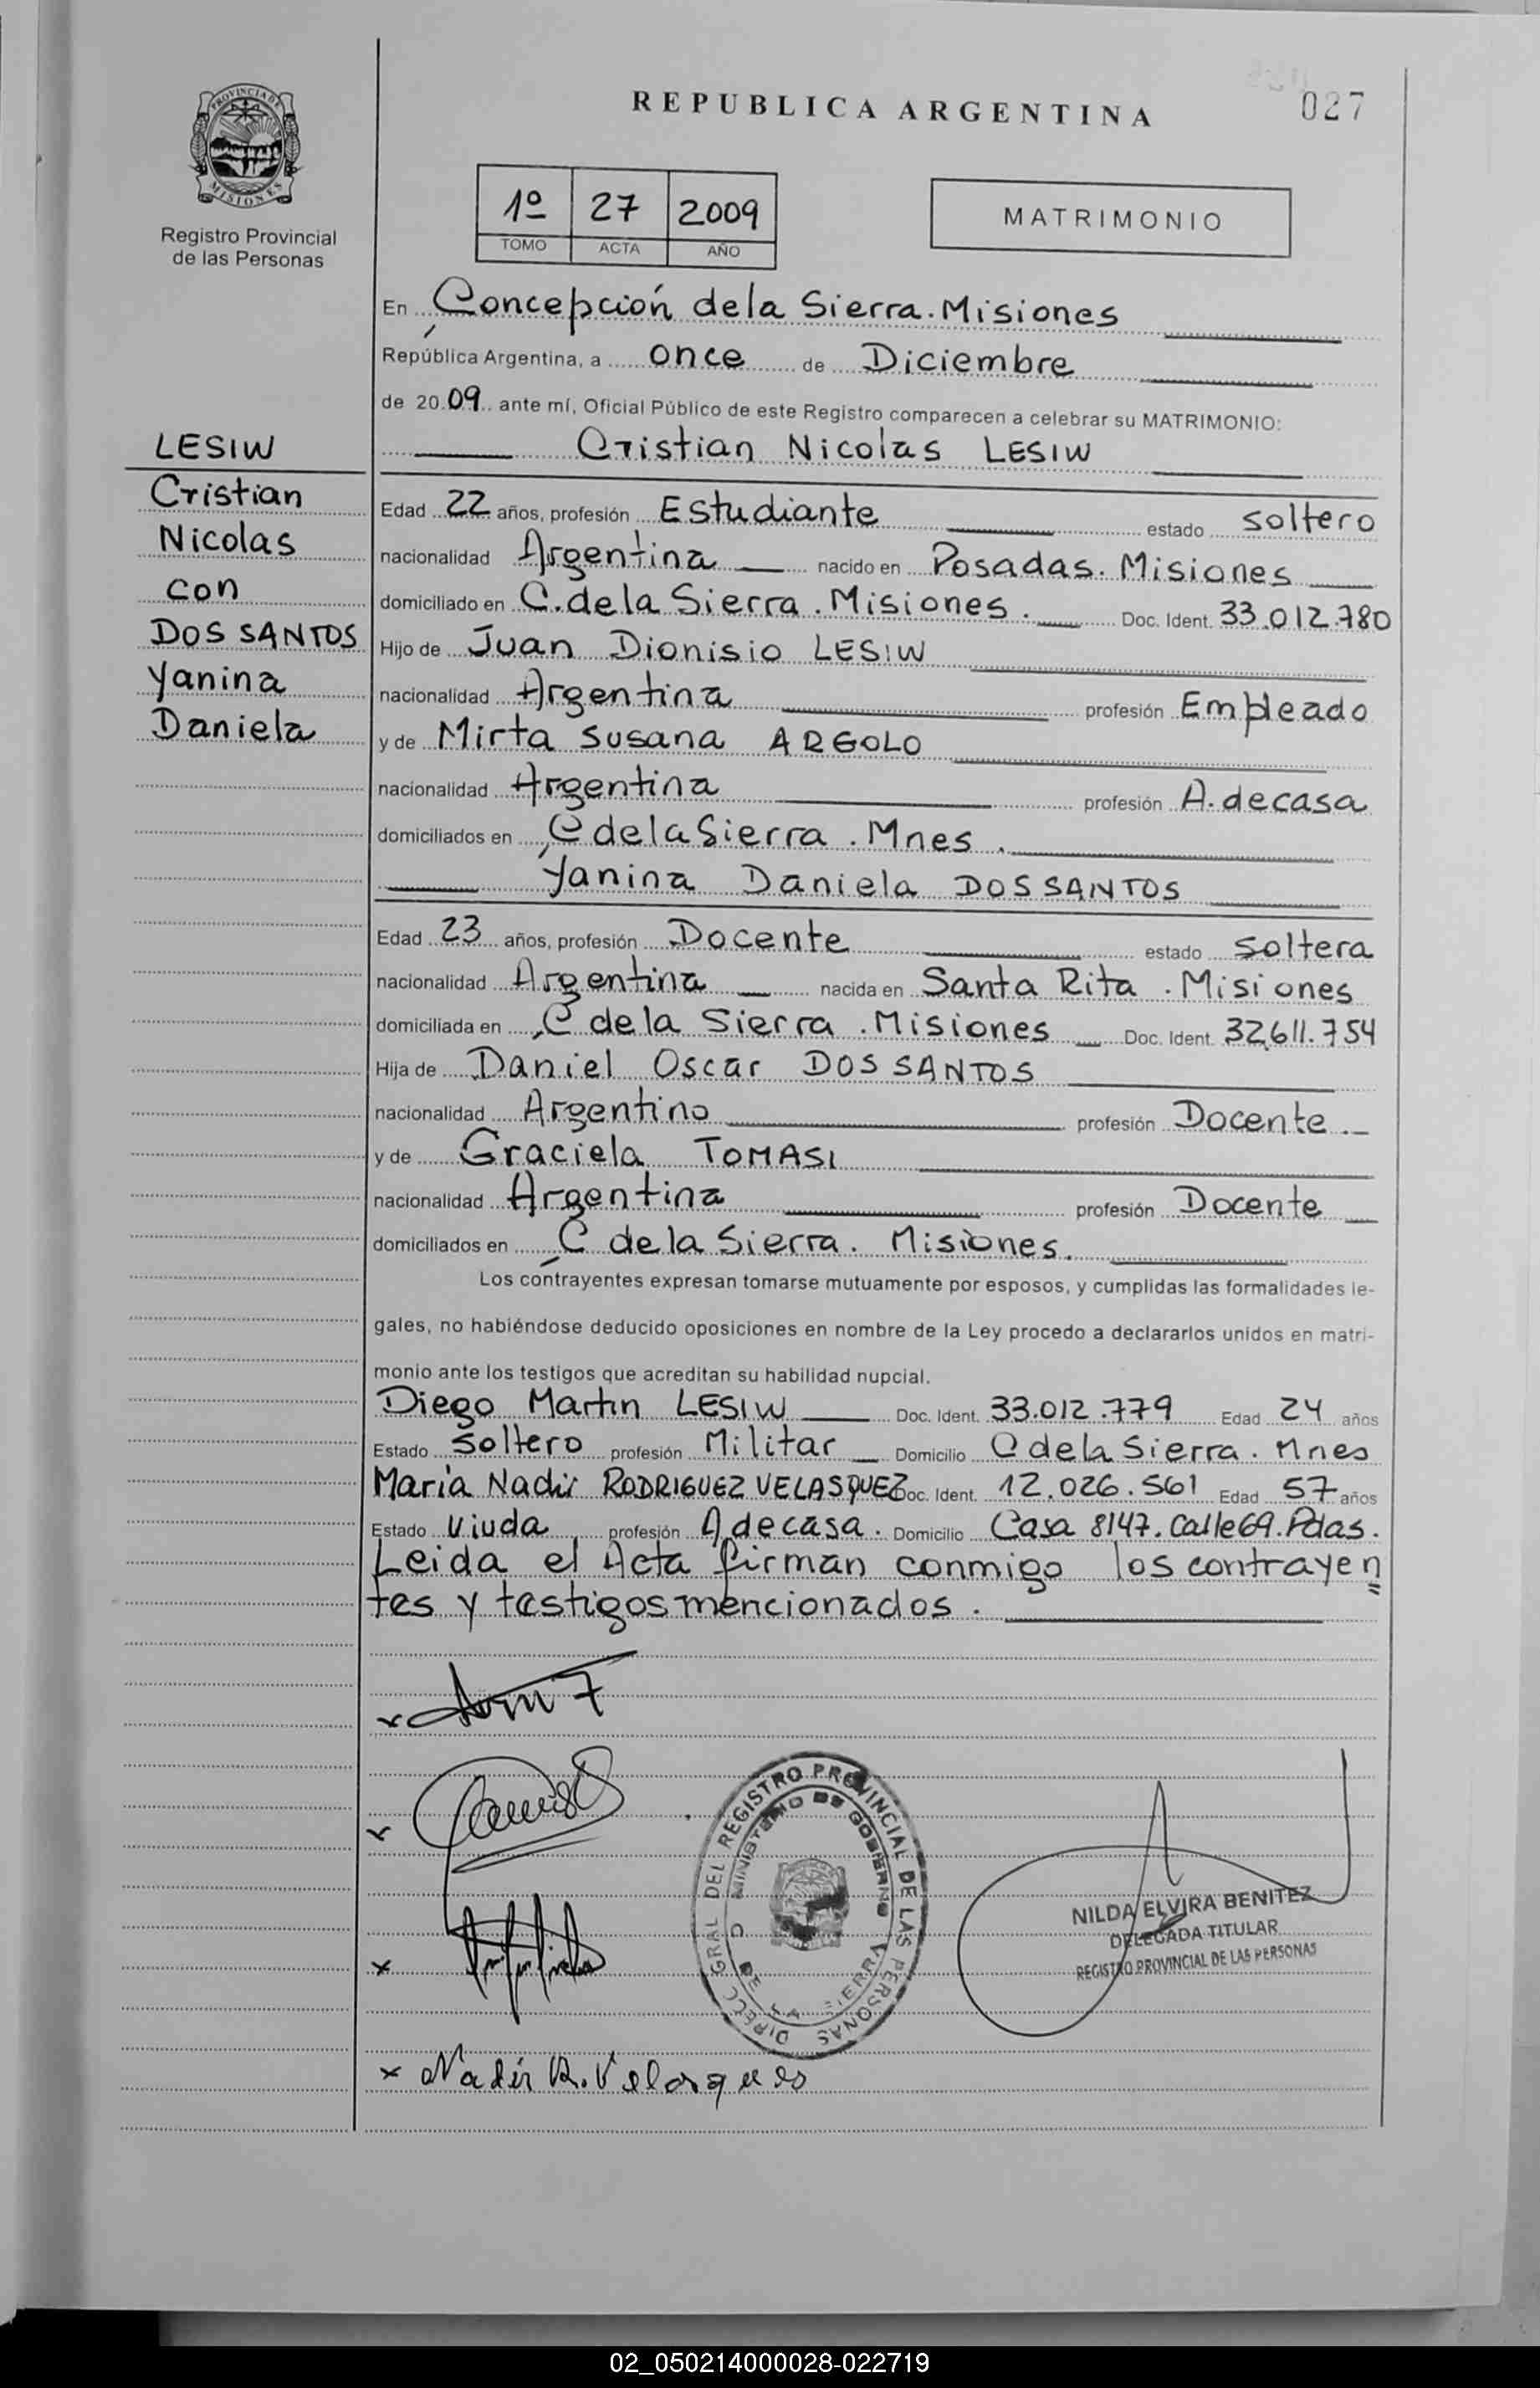 027
REPUBLICA ARGENTINA
PROVINCIA DE MISIONES
Registro Provincial
de las Personas
1º 27 2009
TOMO ACTA AÑO
MATRIMONIO
En Concepción de la Sierra. Misiones
República Argentina, a once de Diciembre
de 2009 ante mí, Oficial Público de este Registro comparecen a celebrar su MATRIMONIO:
LESIW
Cristian
Nicolas
con
DOS SANTOS
Yanina
Daniela
Cristian Nicolas LESIW
Edad 22 años, profesión Estudiante estado soltero
nacionalidad Argentina nacido en Posadas. Misiones
domiciliado en C. de la Sierra. Misiones. Doc. Ident. 33.012.780
Hijo de Juan Dionisio LESIW
nacionalidad Argentina profesión Empleado
y de Mirta Susana ARGOLO
nacionalidad Argentina profesión A. de casa
domiciliados en C de la Sierra. Mnes.
Yanina Daniela DOS SANTOS
Edad 23 años, profesión Docente estado soltera
nacionalidad Argentina nacida en Santa Rita. Misiones
domiciliada en C de la Sierra. Misiones Doc. Ident. 32.611.754
Hija de Daniel Oscar DOS SANTOS
nacionalidad Argentino profesión Docente.
y de Graciela TOMASI
nacionalidad Argentina profesión Docente
domiciliados en C de la Sierra. Misiones.
Los contrayentes expresan tomarse mutuamente por esposos, y cumplidas las formalidades le-
gales, no habiéndose deducido oposiciones en nombre de la Ley procedo a declararlos unidos en matri-
monio ante los testigos que acreditan su habilidad nupcial.
Diego Martin LESIW Doc. Ident. 33.012.779 Edad 24 años
Estado Soltero profesión Militar Domicilio C de la Sierra. Mnes
Maria Nadir RODRIGUEZ VELASQUEZ Doc. Ident. 12.026.561 Edad 57 años
Estado Viuda profesión A de casa. Domicilio Casa 8147. Calle 69. Pdas.
Leida el Acta firman conmigo los contrayen
tes y testigos mencionados.
DIRECC GRAL DEL REGISTRO PROVINCIAL DE LAS PERSONAS
MINISTERIO DE GOBIERNO
C DE LA SIERRA
NILDA ELVIRA BENITEZ
DELEGADA TITULAR
REGISTRO PROVINCIAL DE LAS PERSONAS
x Nadir R. Velasques
02_050214000028-022719